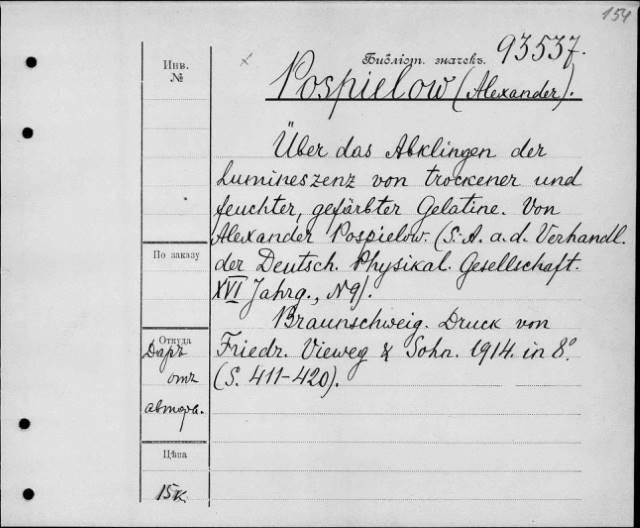 154
Инв. №
Библіот. значекъ. 93537.
Pospielow (Alexander).
Über das Abklingen der
Lumineszenz von trockener und
feuchter, gefärbter Gelatine. Von
Alexander Pospielow. (S. A. a. d. Verhandl.
der Deutsch. Physikal. Gesellschaft.
XVI Jahrg., N 9).
Braunschweig. Druck von
Friedr. Vieweg & Sohn. 1914. in 8°.
(S. 411-420).
По заказу
Откуда
Даръ
отъ
автора.
Цѣна
15к.